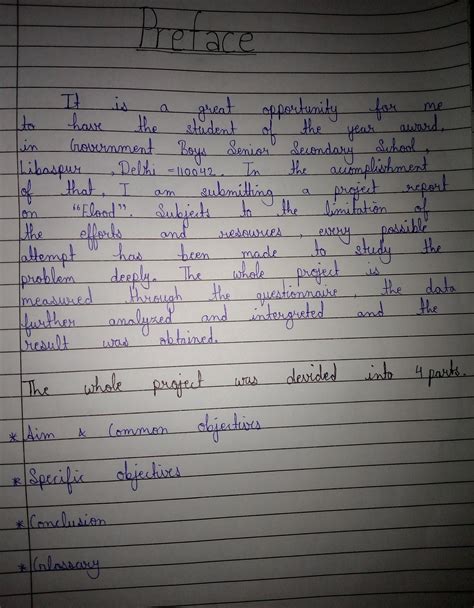 Preface
It is a great opportunity for me
to have the student of the year award,
in Government Boys Senior Secondary School,
Libaspur, Delhi-110042. In the accomplishment
of that, I am submitting a project report
on "Flood". Subjects to the limitation of
the efforts and resources, every possible
attempt has been made to study the
problem deeply. The whole project is
measured through the questionnaire, the data
further analyzed and intergreted and the
result was obtained.
The whole project was devided into 4 parts.
* Aim & Common objectives
* Specific objectives
* Conclusion
* Glossary